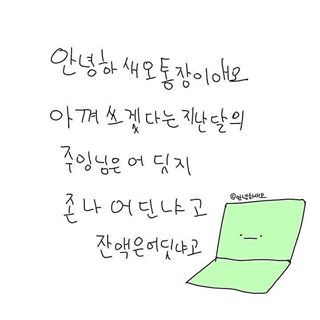 안녕하새오통장이애오
아껴쓰겠다는지난달의
주잉님은어딨지
존나어딘냐고
잔액은어딨냐고
@안녕하새오